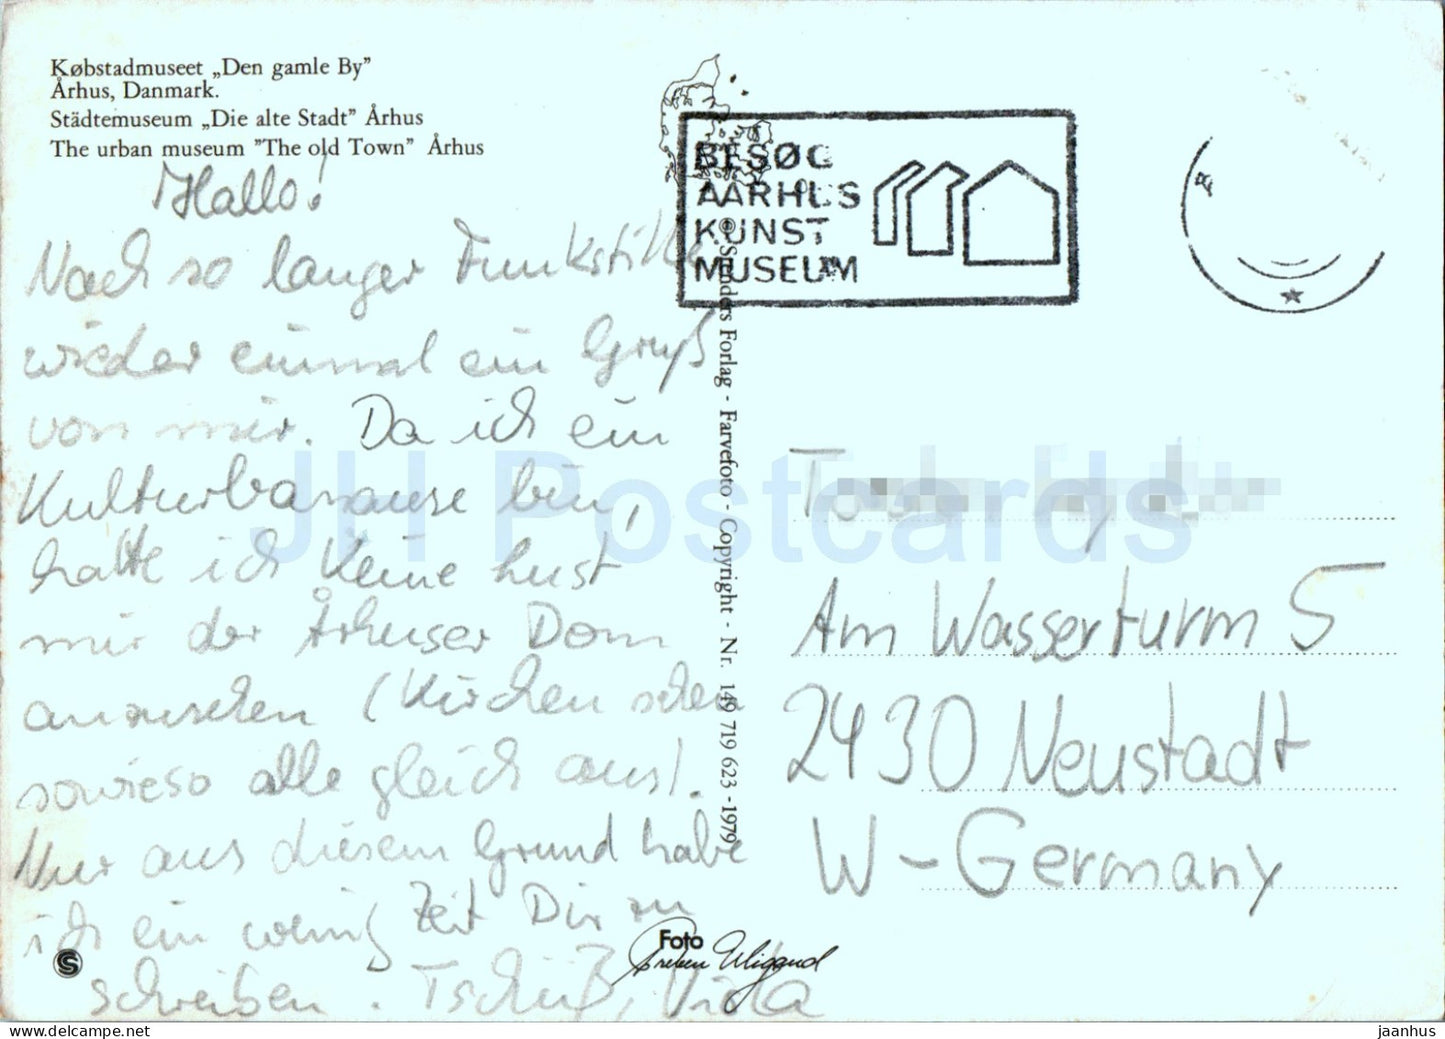 Købstadmuseet „Den gamle By”
Århus, Danmark.
Städtemuseum „Die alte Stadt” Århus
The urban museum ”The old Town” Århus
Hallo!
Nach so langer Funkstille
wieder einmal ein Gruß
von mir. Da ich ein
Kulturbanause bin,
hatte ich keine Lust
mir der Århuser Dom
anzusehen (Kirchen sehen
sowieso alle gleich aus).
Nur aus diesem Grund habe
ich ein wenig Zeit Dir zu
schreiben. Tschüß,
S
Foto
Preben Wiggend
Forlag - Farvefoto - Copyright - Nr. 149 719 623 - 1979
BESØG
AARHUS
KUNST
MUSEUM
Am Wasserturm 5
2430 Neustadt
W-Germany
JH Postcards
jaanhus | delcampe.net